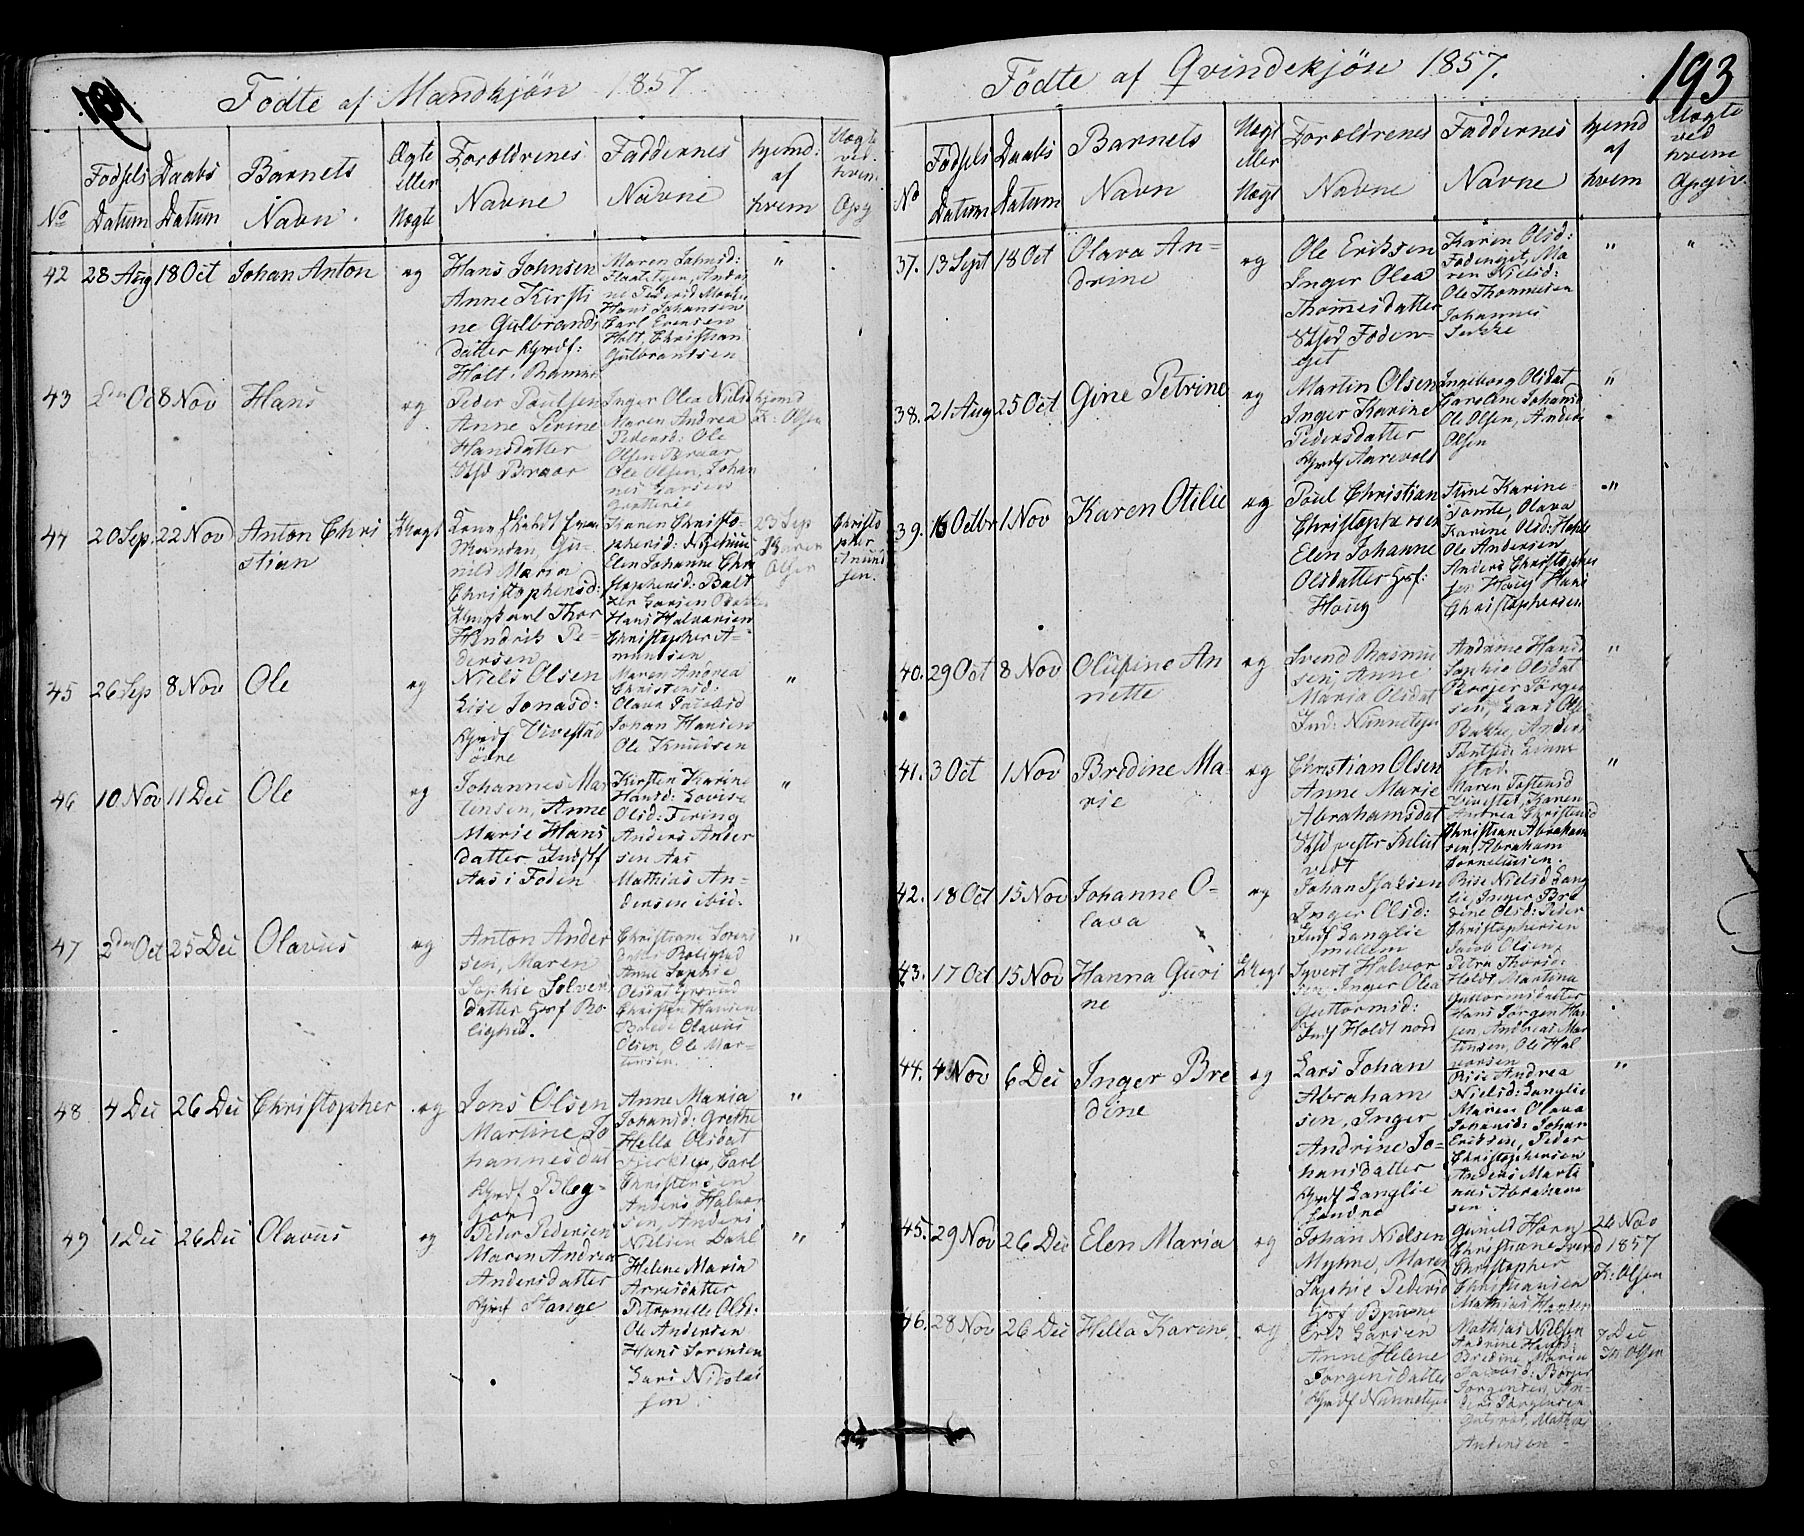 Födte af Mandkjön 1857
No
Fodsels Datum
Daabs Datum
Barnets Navn.
Ægte eller Uægte
Foroldrenes Navne
Faddernes Navne
hjemd: af hvem
Uægte ved. hvem Opg
42
28 Aug
18 Oct
Johan Anton
æg
Hans Johnsen
Anne Kirsti
ne Gulbrands
datter Hmdf:
Holt i Ramnæs
Maren Johnsd:
Hans Johansen
Carl Evensen
Holt, Christian
Gulbrandsen
"
43
2den Oc
8 Nov
Hans
æg
Peder Paulsen
Anne Serine
Hansdatter
Braar
Inger Olea Nielsd
Maren Andrea
Pedersd: Ole
Olsen Braar
Ole Olsen, Johan
nes Larsen
hjemd
K: Olsen
44
20 Sep
22 Nov
Anton Chri
stian
Uægt
nild Maria
Christophersd:
Thor
Hendrik Pe-
dersen
Karen Christo-
phersd:
Elen Johanne Chri
stophersd: Balt
zer Larsen
Hans Halvorsen
Christopher A-
mundsen
23 Sep
Karen
Olsen
Christo
pher
Amund
sen.
45
26 Sep
8 Nov
Ole
æg
Niels Olsen
Lise Jonasd:
Hmdf Vivestad
ödre
Maren Andrea
Christensd:
Olava Jacobsd
Johan Hansen
Ole Knudsen
"
46
10 Nov
11 Dec
Ole
æg
Johannes Mar
tensen, Anne
Marie Hans
datter Indstf
Aas i Foden
Kirsten Karine
Hansd: Lovise
Olsd: Tering
Anders Ander
sen Aas
Mathias An-
dersen ibid.
"
47
2den Oct
25 Dec
Olavus
æg
Anton Ander
sen, Maren
Sophie Solven
datter Hmf Ro
lighed.
Christiane Sorens
Anne Sophie
Christen Hansen
Brede Olavus
Olsen, Ole Mar-
tinsen.
"
48
4 Dec
26 Dec
Christopher
æg
Jens Olsen
Martine Jo
hannesdat
Hmdf Bleg-
jord
Anne Maria
Johansd: Grethe
Hella Olsdat
Carl
Christensen
Anders Halvor
sen, Anders
Nielsen Dahl
"
49
1 Dec
26 Dec
Olavus
æg
Peder Pedersen
Maren Andrea
Andersdatter
Hmdf Stange
Helene Maria
Arnesdatter
Petronelle Olsd:
Ole Andersen
Hans Sorensen
Lars Nicolai
sen.
"
Födte af Qvindekjön 1857.
193
No
Fodsels Datum
Daabs Datum
Barnets Navn
Uægt eller Uægt
Foroldrenes Navne
Faddernes Navne
hjemd af hvem
Uægte ved hvem Opgiv.
37.
13 Sept
18 Oct
Olava An-
drine
æg
Ole Eriksen
Inger Olea
Thomesdatter
Foden-
get
Karen Olsd:
Fodenget, Ma
ren Nielsd:
Ole Thommesen
Johannes
"
"
38.
21 Aug
25 Oct
Gine Petrine
æg
Martin Olsen
Inger Karine
Pedersdatter
Hmdf Aarevold
Ingeborg Olsdat
Karen Ane Johansd
Ole Olsen, Anders
Olsen
"
39.
16 Octbr
1 Nov
Karen Otilie
æg
Poul Christian
Christophersen
Elen Johanne
Olsdatter Hmf:
Houg
Stine Karine
Olava
Karine Olsd:
Ole Andersen
Anders Christopher
sen Houg Hans
Christophersen
"
40.
29 Oct
8 Nov
Olufine An
nette
æg
Svend Rasmus
sen, Anne
Maria Olsdat
Ind: Nannetope
Andrine Hansd
Sophie Olsdat
Borger Jörgen
sen, Lars Ols
Bakke, Anders
"
41.
3 Oct
1 Nov
Bredine Ma-
rie
æg
Christian Olsen
Anne Marie
Abrahamsdat
vestr
vedt
Maren Tostensd
Vivestad, Karen
Andrea Christensd
Christian Abraham
sen, Abraham
Corneliusen.
"
42.
18 Oct
15 Nov
Johanne O-
lava
æg
Johan Isaksen
Inger Olsd:
Indf Langlie
mellem
Rise Nielsd Lang
lie, Inger Bre
dine Olsd: Peder
Christophersen
Jacob Olsen
43.
17 Oct
15 Nov
Hanna Guri
ne
Uægt
Syvert Halvor
sen Inger Olea
Guttormsd:
Indf Holdt nord
Petra Thorsd:
Holdt Martina
Guttormsdatter
Hans Jorgen Han
sen, Andreas Mar
tinsen, Ole Hal
vorsen
44.
4 Nov
6 Dec
Inger Bre
dine
æg
Lars Johan
Abraham
sen, Inger
Andrine Jo-
hansdatter
Hmdf Langlie
söndre
Rise Andrea
Nielsd: Langlie
Maren Olava
Johansd: Johan
Eriksen, Peder
Christophersen
Anders Marti
nus Abraham
sen.
"
45.
29 Nov
26 Dec
Elen Maria
æg
Johan Nielsen
Myhre, Maren
Sophie Pedersd
Hmf Bjune
Gunild Horn
Christiane Svend
Christopher
Christiansen
Mathias Hansen
24 Nov
1857
K: Olsen
46.
28 Nov
26 Dec
Hella Karine.
æg
Erik Larsen
Anne Helene
Jorgensdatter
Hmdf Nannetope
Mathias Nielsen
Andrine Hansd:
Bredine Maria
Jacobsd: Borger
Jorgensen, An-
ders Jorgensen
Mathias
Andersen
7 Dec
Olsen